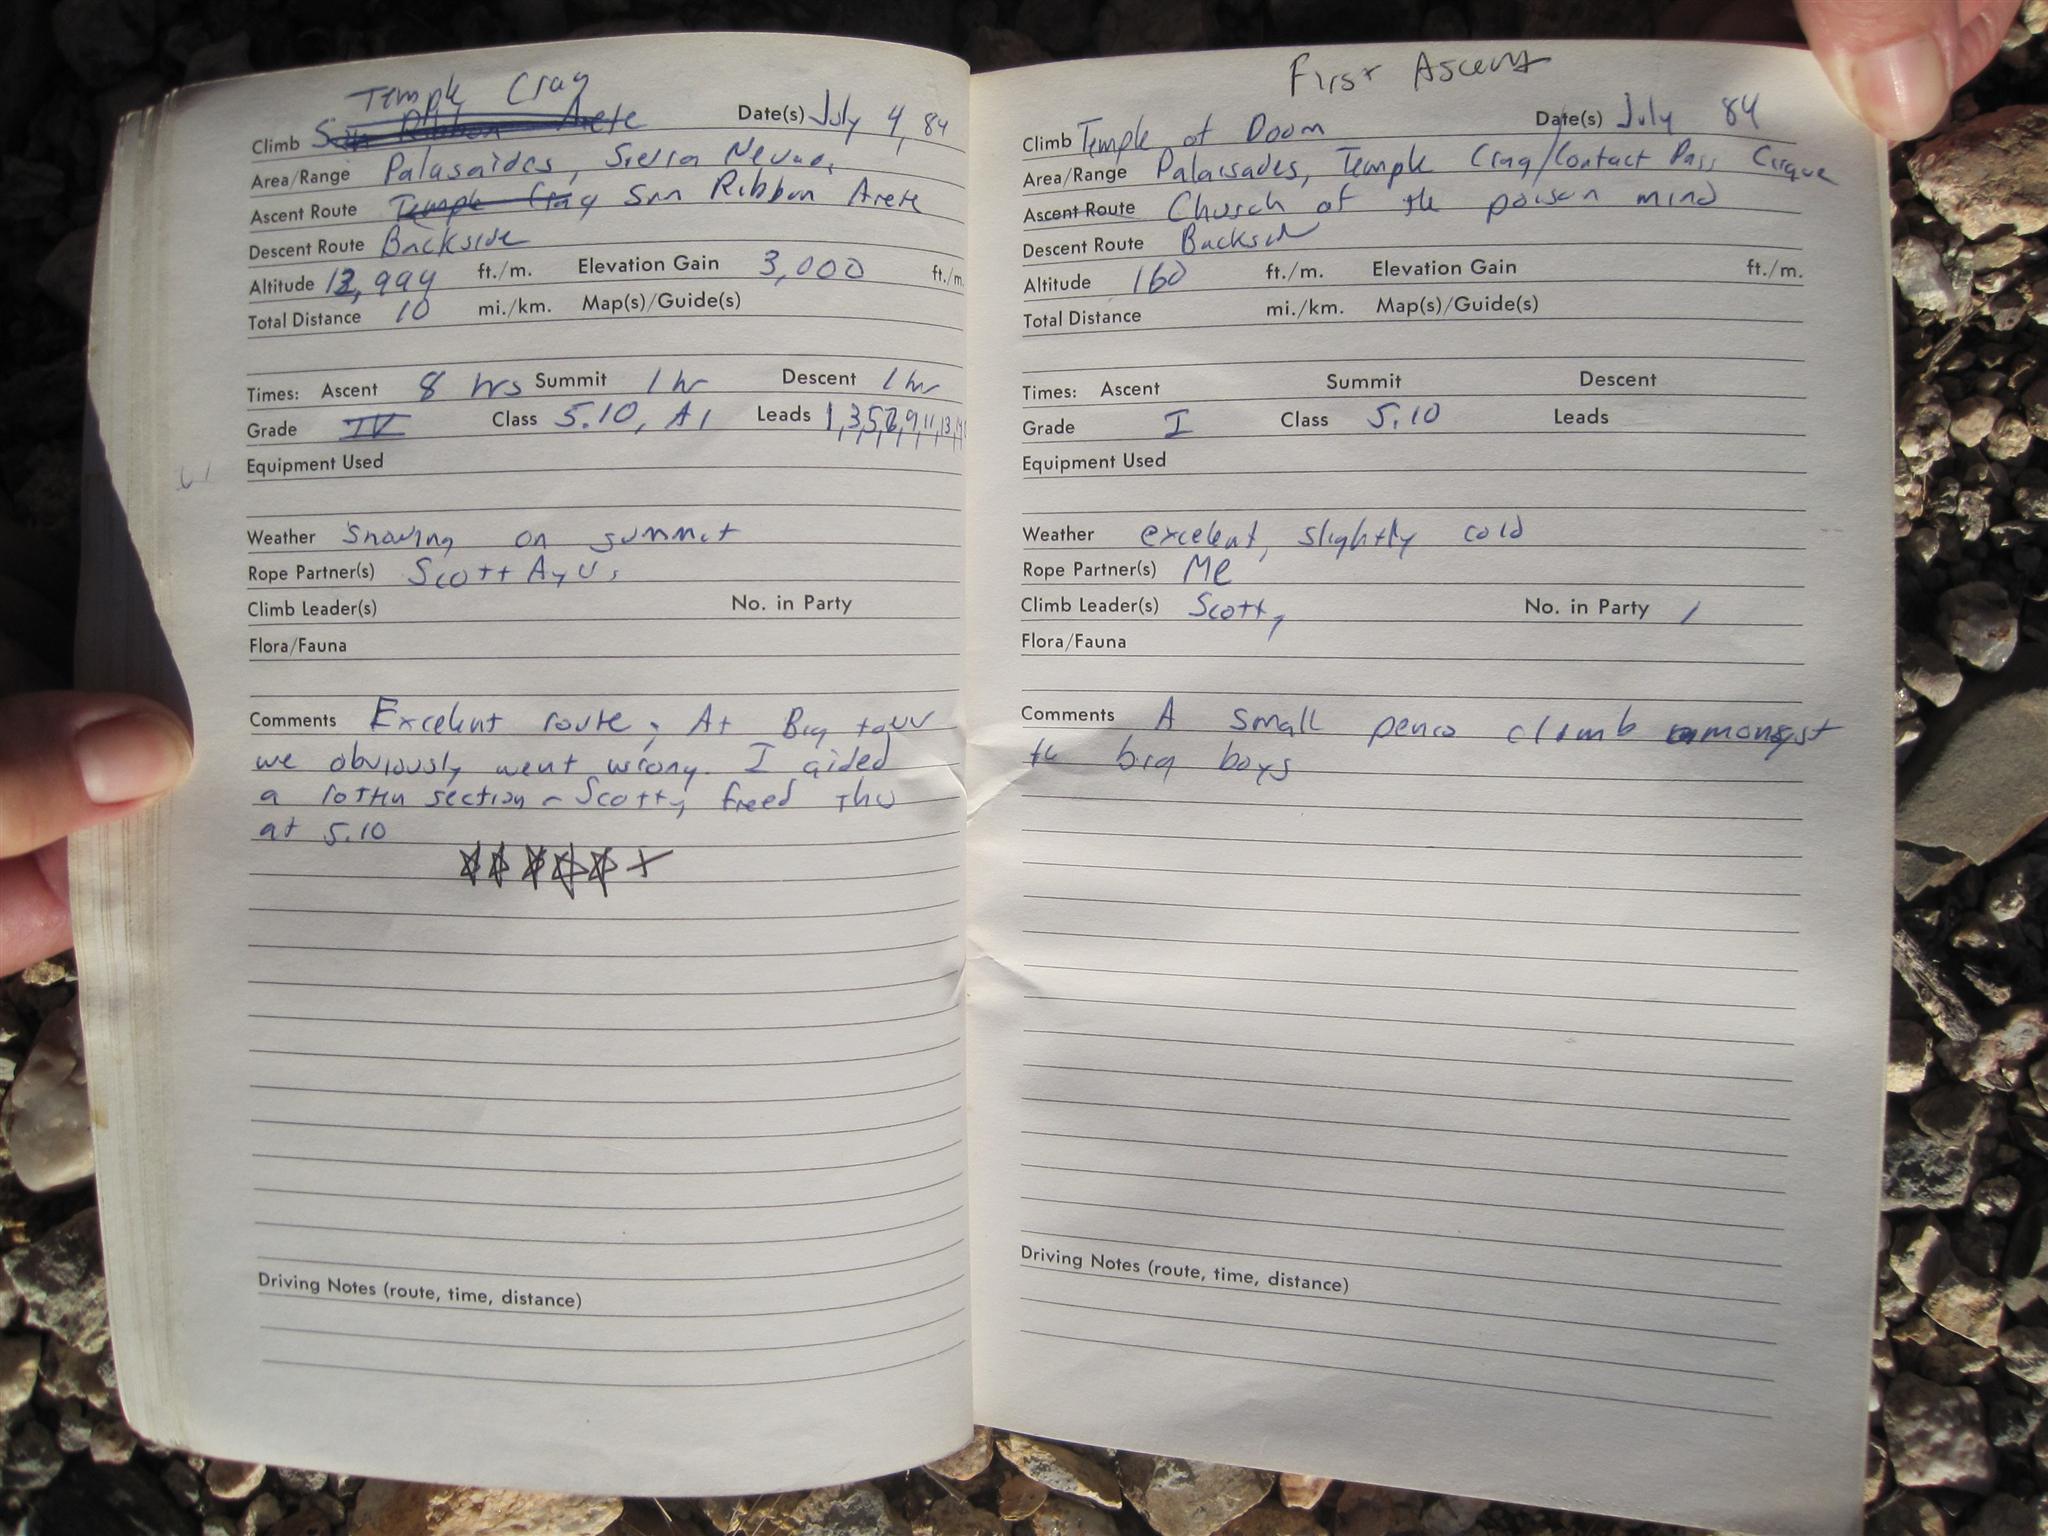 Temple Crag
Climb Sun Ribbon Arete Date(s) July 4, 84
Area/Range Palasaides, Sierra Nevada
Ascent Route Temple Crag Sun Ribbon Arete
Descent Route Backside
Altitude 12,999 ft./m. Elevation Gain 3,000 ft./m.
Total Distance 10 mi./km. Map(s)/Guide(s)
Times: Ascent 8 hrs Summit 1 hr Descent 1 hr
Grade IV Class 5.10, A1 Leads 1,3,5,7,9,11,13,
Equipment Used
Weather Snowing on summit
Rope Partner(s) Scott
Climb Leader(s) No. in Party
Flora/Fauna
Comments Excelent route, At Big tower
we obviously went wrong. I aided
a rotten section - Scotty freed this
at 5.10
☆☆☆☆☆+
Driving Notes (route, time, distance)
First Ascent
Climb Temple of Doom Date(s) July 84
Area/Range Palaisades, Temple Crag/Contact Pass Cirque
Ascent Route Church of the poison mind
Descent Route Backside
Altitude 160 ft./m. Elevation Gain ft./m.
Total Distance mi./km. Map(s)/Guide(s)
Times: Ascent Summit Descent
Grade I Class 5.10 Leads
Equipment Used
Weather excelent, slightly cold
Rope Partner(s) Me
Climb Leader(s) Scotty No. in Party 1
Flora/Fauna
Comments A small climb amongst
the big boys
Driving Notes (route, time, distance)